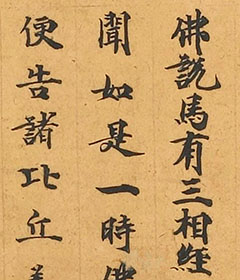 佛説馬有三相經
聞如是一時佛
便告諸比丘